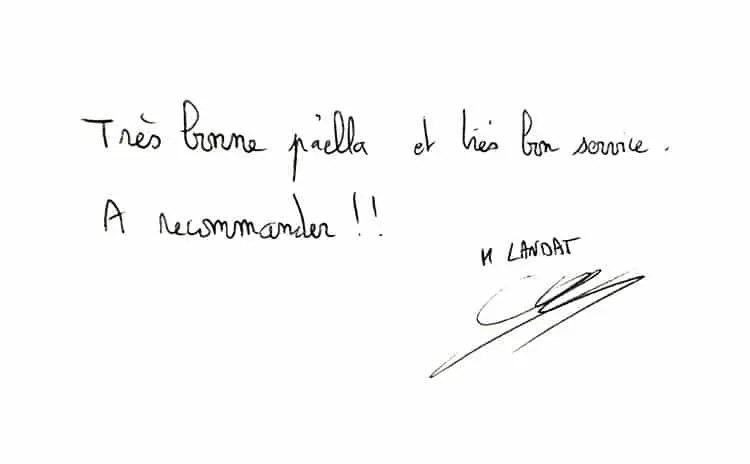 Très bonne pàella et très bon service.
A recommander !!
M LANDAT